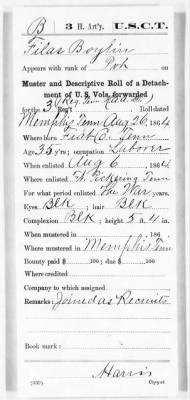 B | 3 H. Art'y. | U.S.C.T.
Filas Boylin
Appears with rank of Pvt
Muster and Descriptive Roll of a Detach-
ment of U. S. Vols. forwarded
for the 3d Reg't Roll dated
Memphis Tenn Aug 26, 1864
Where born Tenn
Age, 35 y'rs; occupation Laborer
When enlisted Aug 6, 1864
Where enlisted Ft. Pickering Tenn
For what period enlisted The War years.
Eyes Blk; hair Blk
Complexion Blk; height 5 ft. 4 in.
When mustered in , 186
Where mustered in Memphis Tenn
Bounty paid $ 100; due $ 100
Where credited
Company to which assigned
Remarks: Joined as Recruits
Book mark:
Harris
(339) Copyist.